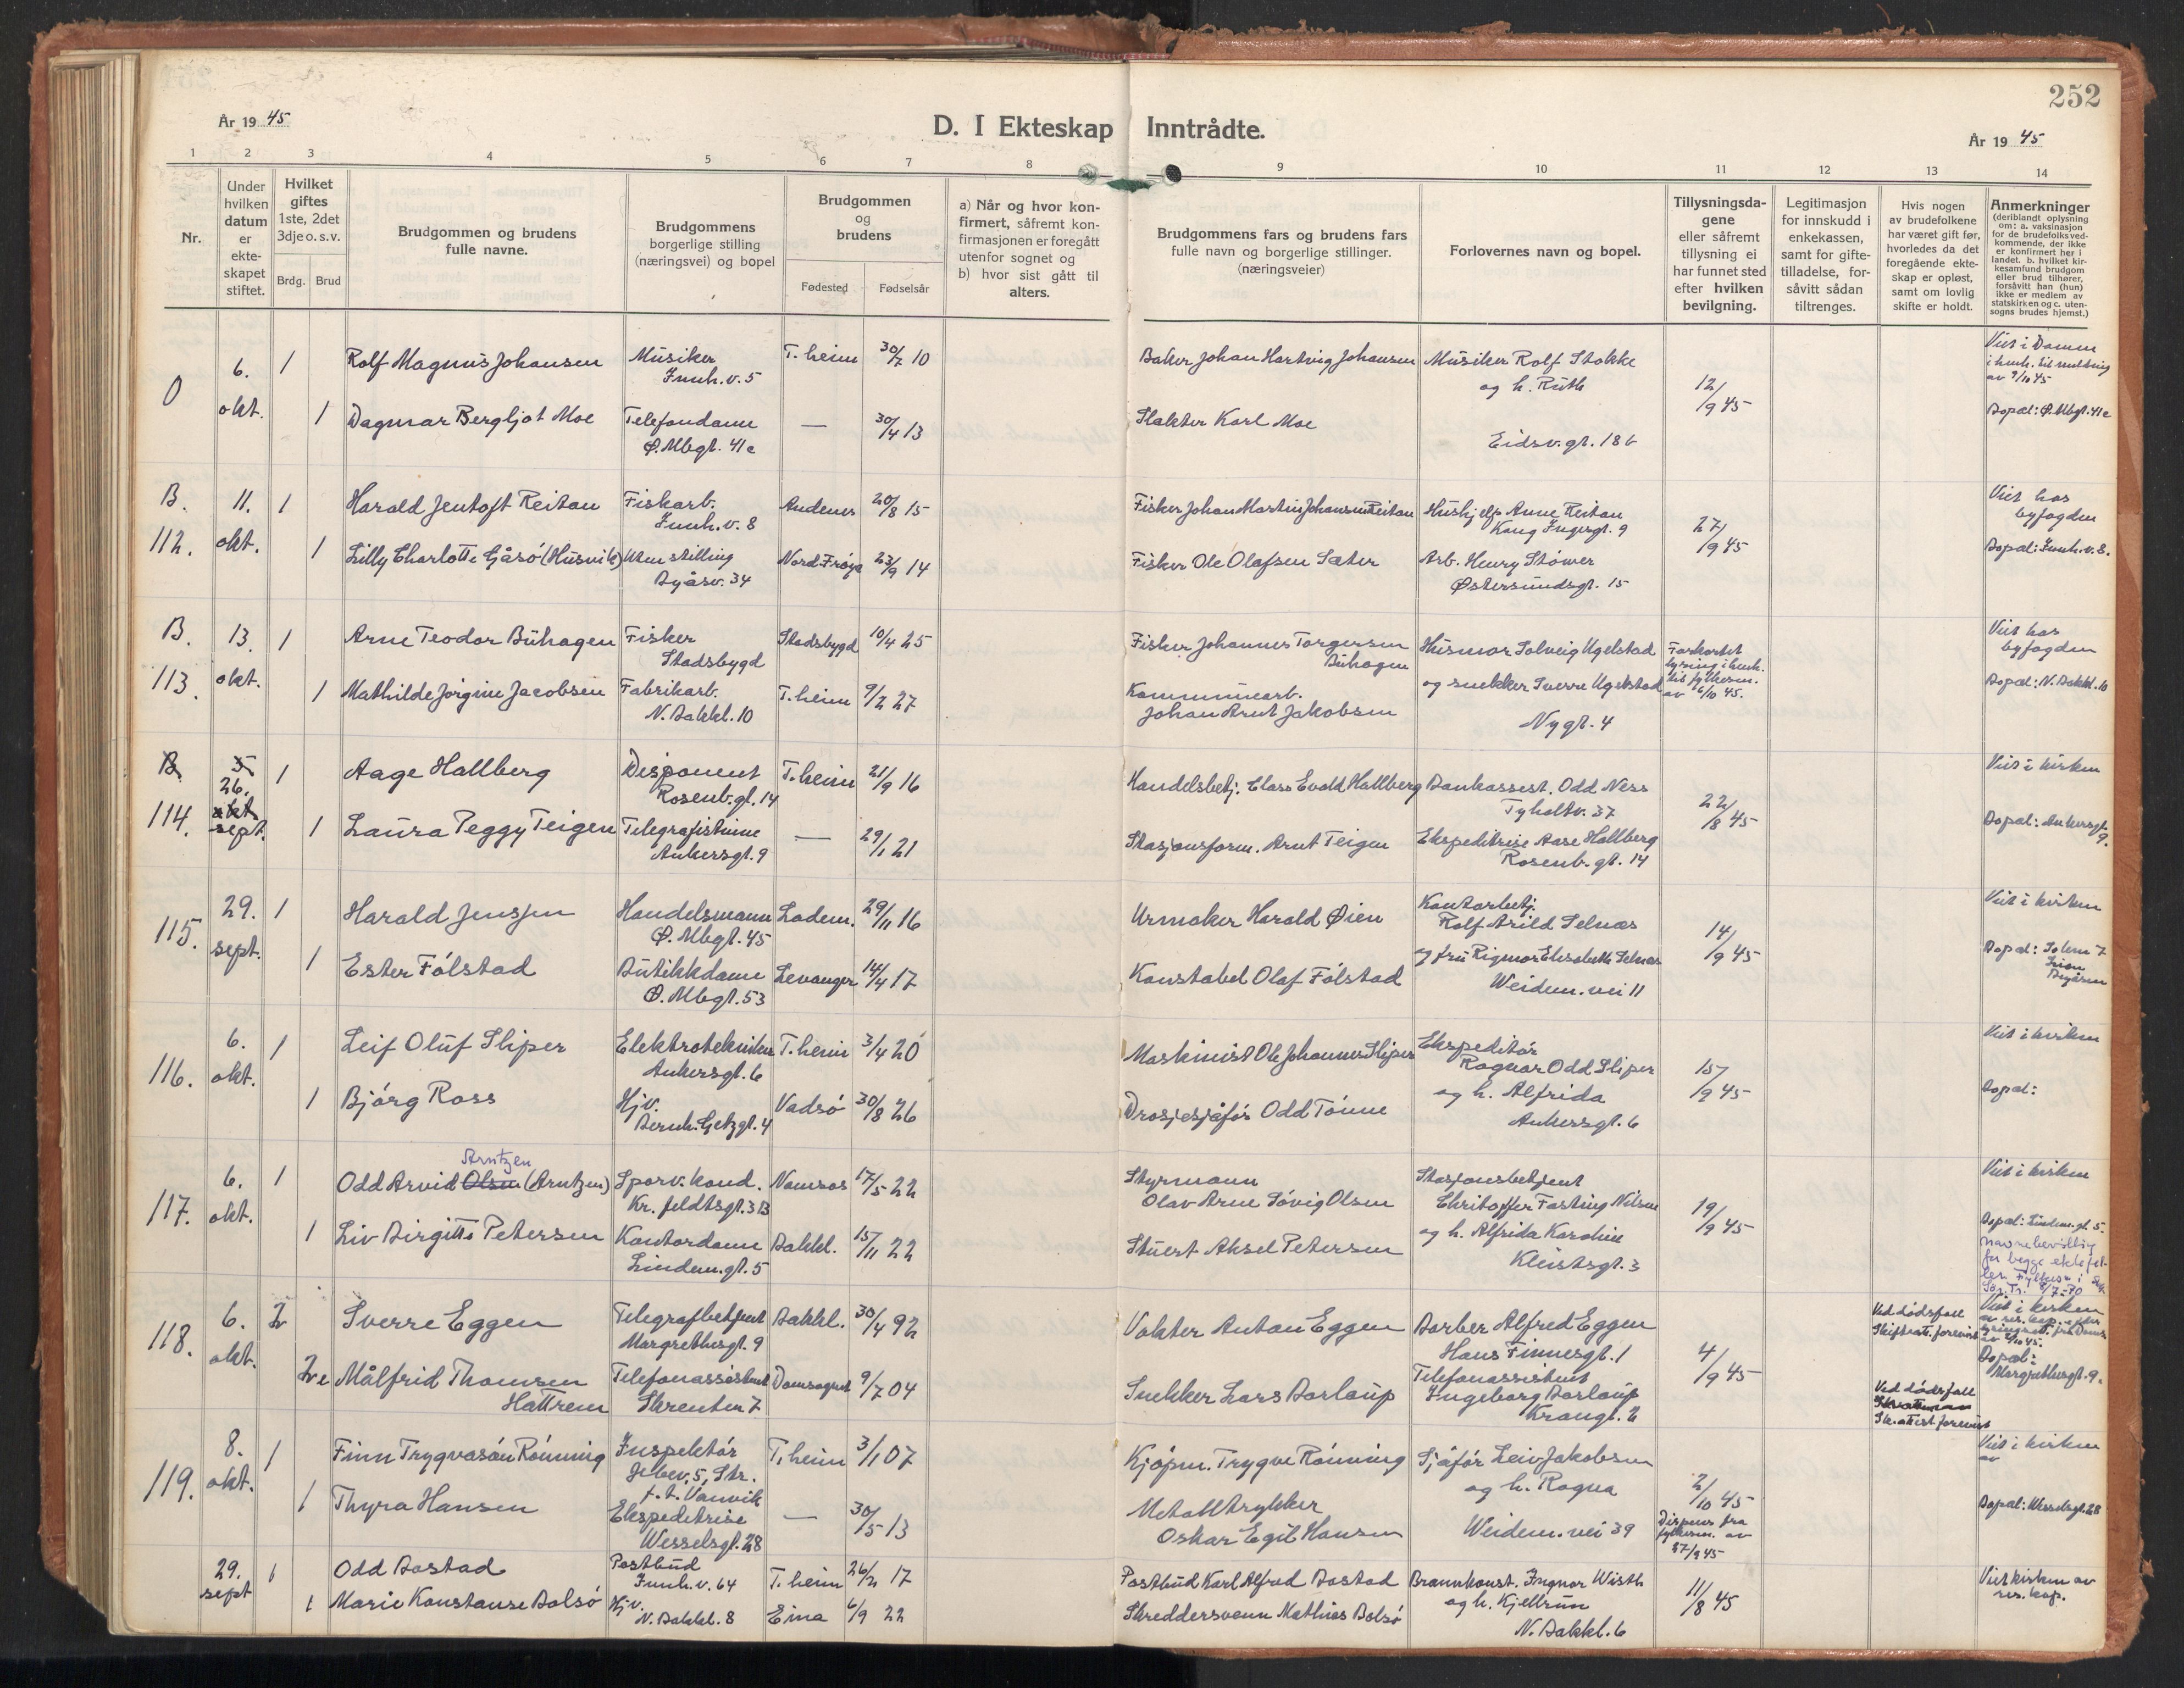 252
År 1945
D. I Ekteskap Inntrådte.
År 1945
1 2 3 4 5 6 7 8 9 10 11 12 13 14
Nr.
Under hvilken datum er ekteskapet stiftet.
Hvilket giftes 1ste, 2det 3dje o.s.v.
Brdg. Brud
Brudgommen og brudens fulle navne.
Brudgommens borgerlige stilling (næringsvei) og bopel
Brudgommen og brudens
Fødested Fødselsår
a) Når og hvor konfirmert, såfremt konfirmasjonen er foregått utenfor sognet og
b) hvor sist gått til alters.
Brudgommens fars og brudens fars fulle navn og borgerlige stillinger. (næringsveier)
Forlovernes navn og bopel.
Tillysningsdagene eller såfremt tillysning ei har funnet sted efter hvilken bevilgning.
Legitimasjon for innskudd i enkekassen, samt for giftetilladelse, forsåvitt sådan tiltrenges.
Hvis nogen av brudefolkene har været gift før, hvorledes da det foregående ekteskap er opløst, samt om lovlig skifte er holdt.
Anmerkninger (deriblandt oplysning om: a. vaksinasjon for de brudefolks vedkommende, der ikke er konfirmert her i landet. b. hvilket kirkesamfund brudgom eller brud tilhører, forsåvitt han (hun) ikke er medlem av statskirken og c. utensogns brudes hjemst.)
0 6. okt. 1 Rolf Magnus Johansen Musiker Innh.v. 5 T.heim 30/7 10 Baker Johan Hartvig Johansen Musiker Rolf Stokke og h. Ruth 12/9 45 Viet i Domen i henh. til melding av 9/10 45
1 Dagmar Bergljot Moe Telefondame Ø. Mbgt. 41c — 30/4 13 Slakter Karl Moe Eidsv.gt. 18b Bopæl: Ø. Mbgt. 41c
B. 112. 11. okt. 1 Harald Jentoft Reitan Fiskarb. Innh.v. 8 Andenes 20/8 15 Fisker Johan Martin Johansen Reitan Hushjelp Anne Reitan Kong Ingesgt. 9 27/9 45 Viet hos byfogden
1 Lilly Charlotte Gåsø (Husvik) Uten stilling Byåsv. 34 Nord Frøya 23/9 14 Fisker Ole Olafsen Sæter Arb. Henry Størmer Østersundsgt. 15 Bopæl: Innh.v. 8.
B. 113. 13. okt. 1 Arne Teodor Buhagen Fisker Stadsbygd Stadsbygd 10/4 25 Fisker Johannes Torgersen Buhagen Husmor Solveig Ugelstad Forkortet lysing i henh. til fylkesm. av 6/10 45. Viet hos byfogden
1 Mathilde Jørgine Jacobsen Fabrikarb. N. Bakkl. 10 T.heim 9/2 27 Kommunearb. Johan Arnt Jakobsen og snekker Sverre Ugelstad Nygt. 4 Bopæl: N. Bakkl. 10
B. 114. 5 26. okt. sept. 1 Aage Hallberg Disponent Rosenb.gt. 14 T.heim 21/9 16 Handelsbetj. Claes Evald Hallberg Bankassist. Odd Ness Tyholtv. 37 22/8 45 Viet i kirken
1 Laura Peggy Teigen Telegrafistinne Ankersgt. 9 — 29/1 21 Stasjonsform. Arnt Teigen Ekspeditrise Aase Hallberg Rosenb.gt. 14 Bopæl: Ankersgt. 9.
115. 29. sept. 1 Harald Jenssen Handelsmann Ø. Mbgt. 45 Ladem. 29/11 16 Urmaker Harald Øien Kontorbetj. Rolf Arild Selnæs 14/9 45 Viet i kirken
1 Ester Følstad Butikkdame Ø. Mbgt. 53 Levanger 14/4 17 Konstabel Olaf Følstad og fru Rigmor Elisabeth Selnæs Weidem. vei 11 Bopæl: Solem 7
116. 6. okt. 1 Leif Oluf Sliper Elektrotekniker Ankersgt. 6 T.heim 3/4 20 Maskinist Ole Johannes Sliper Ekspeditør Ragnar Odd Sliper 15/9 45 Viet i kirken
1 Bjørg Ross Hjv. Bernh. Getzgt. 4 Vadsø 30/8 26 Drosjesjåfør Odd Tønne og h. Alfrida Ankersgt. 6 Bopæl:
117. 6. okt. 1 Odd Arvid Olsen Arntzen (Arntzen) Sporv.kond. Kr. feldtsgt. 3B Namsos 17/5 22 Styrmann Olav Arne Søvig Olsen Stasjonsbetjent Christoffer Fasting Nilsen 19/9 45 Viet i kirken
1 Liv Birgitte Petersen Kontordame Lindem.gt. 5 Bakkl. 15/11 22 Stuert Aksel Petersen og h. Alfrida Karoline Kleistsgt. 3 Bopæl: Lindem.gt. 5
Navnebevilling for begge ektefeller Fylkesm. i Sør-Tr. 8/7-70
118. 6. okt. 2 Sverre Eggen Telegrafbetjent Margrethesgt. 9 Bakkl. 30/4 92 Vakter Anton Eggen Barber Alfred Eggen Hans Finnesgt. 1 4/9 45 Ved dødsfall Skifteatt. forevist Viet i kirken av res. kap. efter lysningsatt. fra Domk. av 5/10 45.
2 Målfrid Thomsen Hattrem Telefonassistent Skrenten 7 Domsognet 9/7 04 Snekker Lars Barlaup Telefonassistent Ingeborg Barlaup Krangt. 2 Ved dødsfall Sk.attest forevist Bopæl: Margrethesgt. 9.
119. 8. okt. 1 Finn Trygvasøn Rønning Inspektør Jebev. 5, Str. f.t. Vanvik T.heim 3/1 07 Kjøpm. Trygve Rønning Sjåfør Leiv Jakobsen og h. Ragna 2/10 45 Viet i kirken av
1 Thyra Hansen Ekspeditrise Wesselsgt. 28 — 30/5 13 Metalltrykker Oskar Egil Hansen Weidem. vei 39 Dispens fra fylkesm. av 27/9 45 Bopæl: Wesselsgt. 28
29. sept 1 Odd Bostad Postbud Innh.v. 64 T.heim 26/2 17 Postbud Karl Alfred Bostad Brannkonst. Ingvar Wisth 11/8 45 Viet kirken av res. kap.
1 Marie Konstanse Bolsø Hjv. N. Bakkl. 8 Eina 6/9 22 Skreddersvenn Mathias Bolsø og h. Kjellrun N. Bakkl. 6